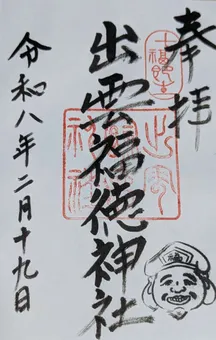 奉拝
出雲福徳神社
令和八年二月十九日
福